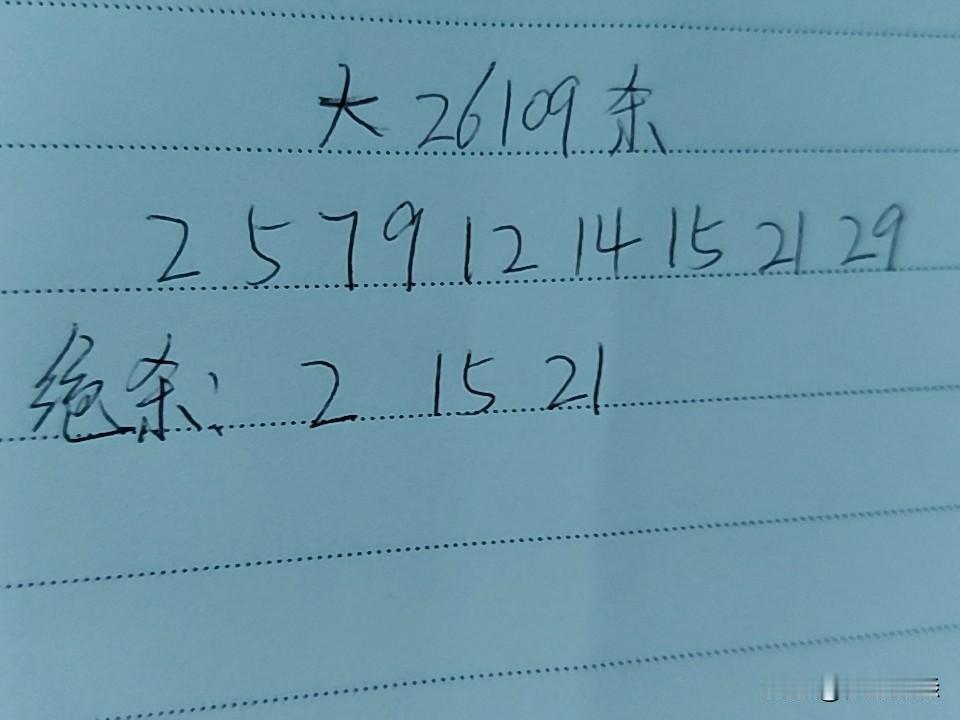 大 26109 杀
2 5 7 9 12 14 15 21 29
绝杀: 2 15 21